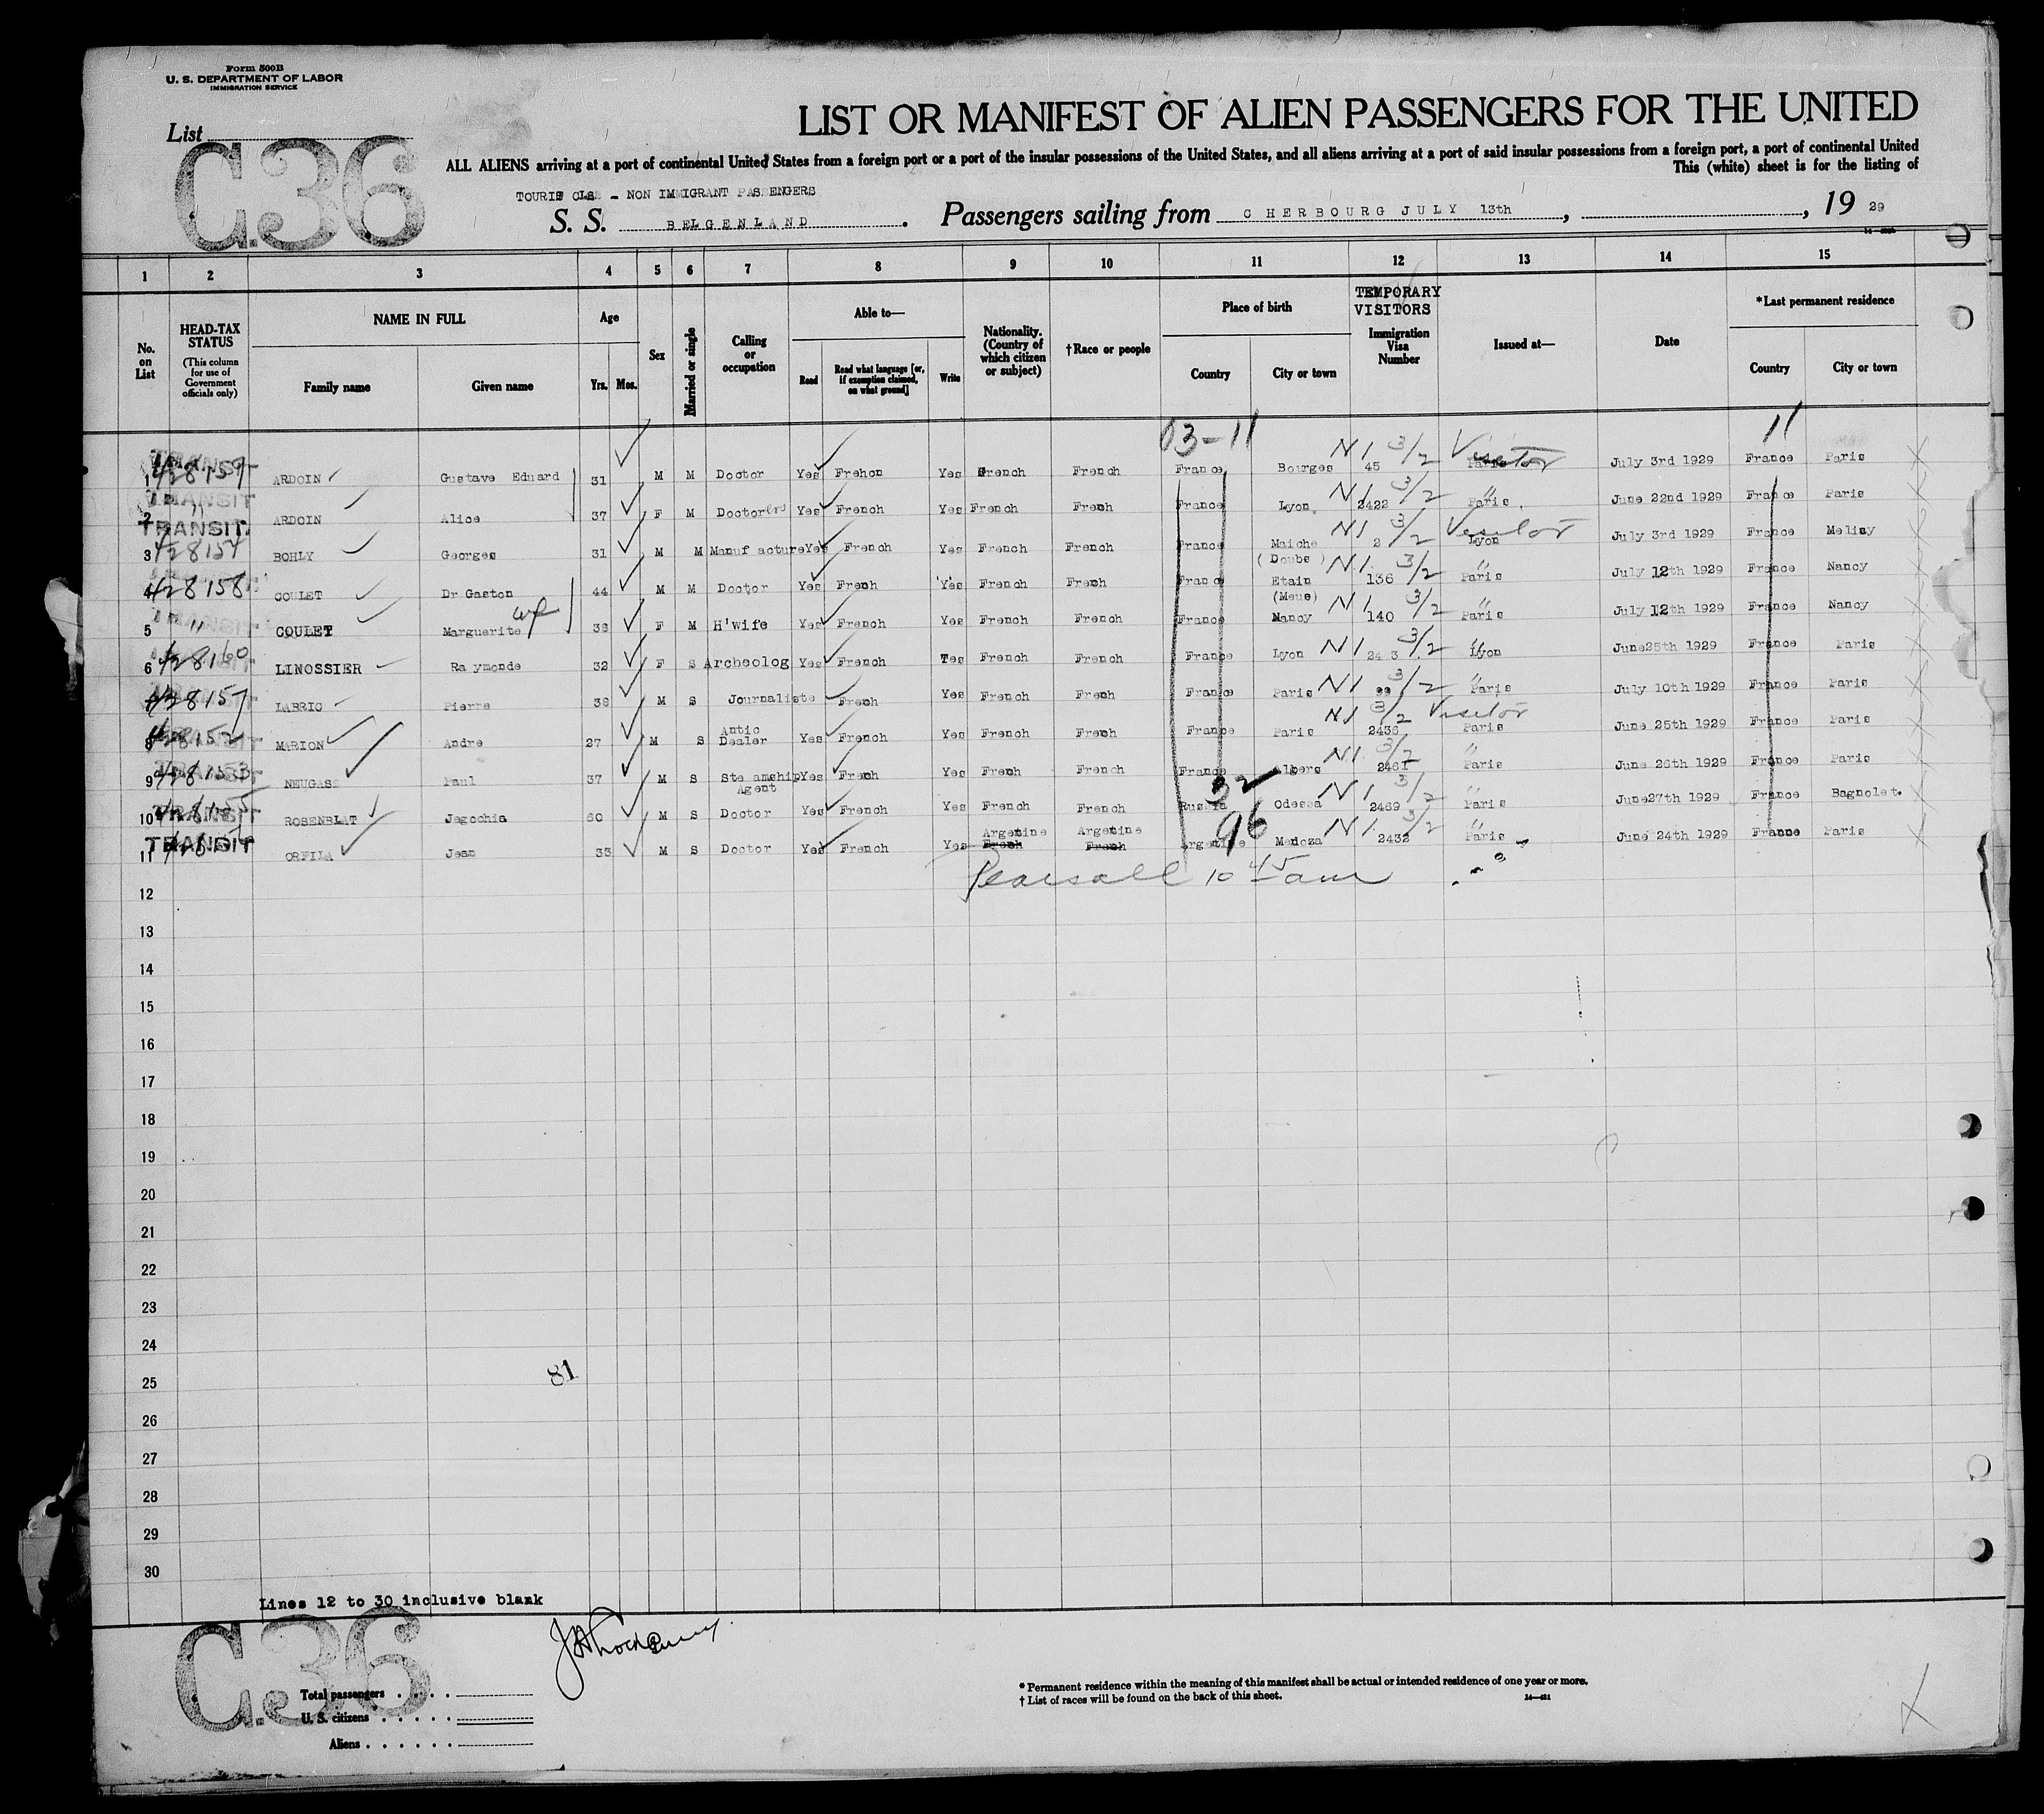 Form 500B
U. S. DEPARTMENT OF LABOR
IMMIGRATION SERVICE
List
C.36
LIST OR MANIFEST OF ALIEN PASSENGERS FOR THE UNITED
ALL ALIENS arriving at a port of continental United States from a foreign port or a port of the insular possessions of the United States, and all aliens arriving at a port of said insular possessions from a foreign port, a port of continental United
This (white) sheet is for the listing of
NON IMMIGRANT PASSENGERS
S. S. BELGENLAND. Passengers sailing from CHERBOURG JULY 13th, , 19 29
1 2 3 4 5 6 7 8 9 10 11 12 13 14 15
No. on List
HEAD-TAX STATUS (This column for use of Government officials only)
NAME IN FULL Family name Given name
Age Yrs. Mos.
Sex
Married or single
Calling or occupation
Able to— Read Read what language [or, if exemption claimed, on what ground] Write
Nationality. (Country of which citizen or subject)
†Race or people
Place of birth Country City or town
TEMPORARY VISITORS Immigration Visa Number
Issued at—
Date
*Last permanent residence Country City or town
03-11 11
1 428159 ARDOIN Gustave Eduard 31 M M Doctor Yes Frehcn Yes French French France Bourges N1 3/2 45 Paris Visitor July 3rd 1929 France Paris
2 " ARDOIN Alice 37 F M Doctor Yes French Yes French French France Lyon N1 3/2 2422 Paris " June 22nd 1929 France Paris
TRANSIT
3 BOHLY Georges 31 M M Manufacture Yes French Yes French French France Maiche (Doubs) N1 3/2 2 Lyon Visitor July 3rd 1929 France Melisy
4 428158 GOULET Dr Gaston 44 M M Doctor Yes French Yes French French France Etain (Meus) N1 3/2 136 Paris " July 12th 1929 France Nancy
5 " GOULET Marguerite wf F M H'wife Yes French Yes French French France Nancy N1 3/2 140 Paris " July 12th 1929 France Nancy
6 428160 LINOSSIER Raymonde 32 F S Archeolog Yes French Yes French French France Lyon N1 3/2 Lyon " June25th 1929 France Paris
7 428157 LABRIC Pierre M S Journaliste French Yes French French France Paris N1 3/2 Paris " July 10th 1929 France Paris
8 428152 MARION Andre 27 M S Antic Dealer Yes French Yes French French France Paris N1 3/2 2436 Paris Visitor June 25th 1929 France Paris
9 428153 NEUGASS Paul 37 M S Steamship Agent Yes French Yes French French France Albers N1 3/2 2461 Paris " June 26th 1929 France Paris
10 ROSENBLAT Jegochia 60 M S Doctor Yes French Yes French French Russia 32 Odessa N1 3/2 2469 Paris " June27th 1929 France Bagnolet.
TRANSIT
11 ORFILA Jean 33 M S Doctor Yes French Yes Argetine French Argetine French Argetine 96 Mendoza N1 3/2 2432 Paris " June 24th 1929 France Paris
12 Pearsall 10 45 am
13
14
15
16
17
18
19
20
21
22
23
24
25 81
26
27
28
29
30
Lines 12 to 30 inclusive blank
C.36
Total passengers
U. S. citizens
Aliens
* Permanent residence within the meaning of this manifest shall be actual or intended residence of one year or more.
† List of races will be found on the back of this sheet.